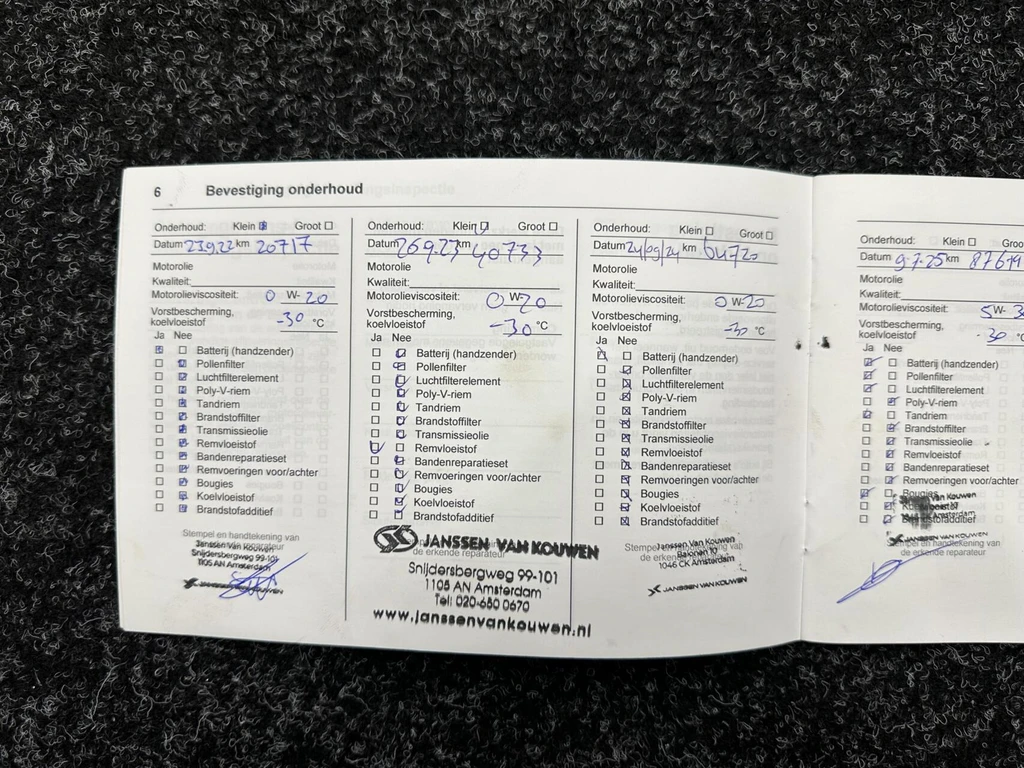 6 Bevestiging onderhoud
Onderhoud: Klein Groot
Datum 23.9.22 km 20717
Motorolie
Kwaliteit:
Motorolieviscositeit: 0 W- 20
Vorstbescherming,
koelvloeistof -30 °C
Ja Nee
Batterij (handzender)
Pollenfilter
Luchtfilterelement
Poly-V-riem
Tandriem
Brandstoffilter
Transmissieolie
Remvloeistof
Bandenreparatieset
Remvoeringen voor/achter
Bougies
Koelvloeistof
Brandstofadditief
Stempel en handtekening van
Janssen Van Kouwen
Snijdersbergweg 99-101
1105 AN Amsterdam
JANSSEN VAN KOUWEN
Onderhoud: Klein Groot
Datum 26.9.23 km 40733
Motorolie
Kwaliteit:
Motorolieviscositeit: 0 W-20
Vorstbescherming,
koelvloeistof -30 °C
Ja Nee
Batterij (handzender)
Pollenfilter
Luchtfilterelement
Poly-V-riem
Tandriem
Brandstoffilter
Transmissieolie
Remvloeistof
Bandenreparatieset
Remvoeringen voor/achter
Bougies
Koelvloeistof
Brandstofadditief
JANSSEN VAN KOUWEN
de erkende reparateur
Snijdersbergweg 99-101
1105 AN Amsterdam
Tel: 020-680 0670
www.janssenvankouwen.nl
Onderhoud: Klein Groot
Datum 24/09/24 km 64720
Motorolie
Kwaliteit:
Motorolieviscositeit: 0 W-20
Vorstbescherming,
koelvloeistof -30 °C
Ja Nee
Batterij (handzender)
Pollenfilter
Luchtfilterelement
Poly-V-riem
Tandriem
Brandstoffilter
Transmissieolie
Remvloeistof
Bandenreparatieset
Remvoeringen voor/achter
Bougies
Koelvloeistof
Brandstofadditief
Stempel en handtekening van
de erkende reparateur
Janssen Van Kouwen
1046 CK Amsterdam
JANSSEN VAN KOUWEN
Onderhoud: Klein Groo
Datum 9.7.25 km 87619
Motorolie
Kwaliteit:
Motorolieviscositeit: 5W-3
Vorstbescherming,
koelvloeistof -30 °C
Ja Nee
Batterij (handzender)
Pollenfilter
Luchtfilterelement
Poly-V-riem
Tandriem
Brandstoffilter
Transmissieolie
Remvloeistof
Bandenreparatieset
Remvoeringen voor/achter
Bougies
Koelvloeistof
Brandstofadditief
Janssen Van Kouwen
Amsterdam
JANSSEN VAN KOUWEN
Stempel en handtekening van
de erkende reparateur